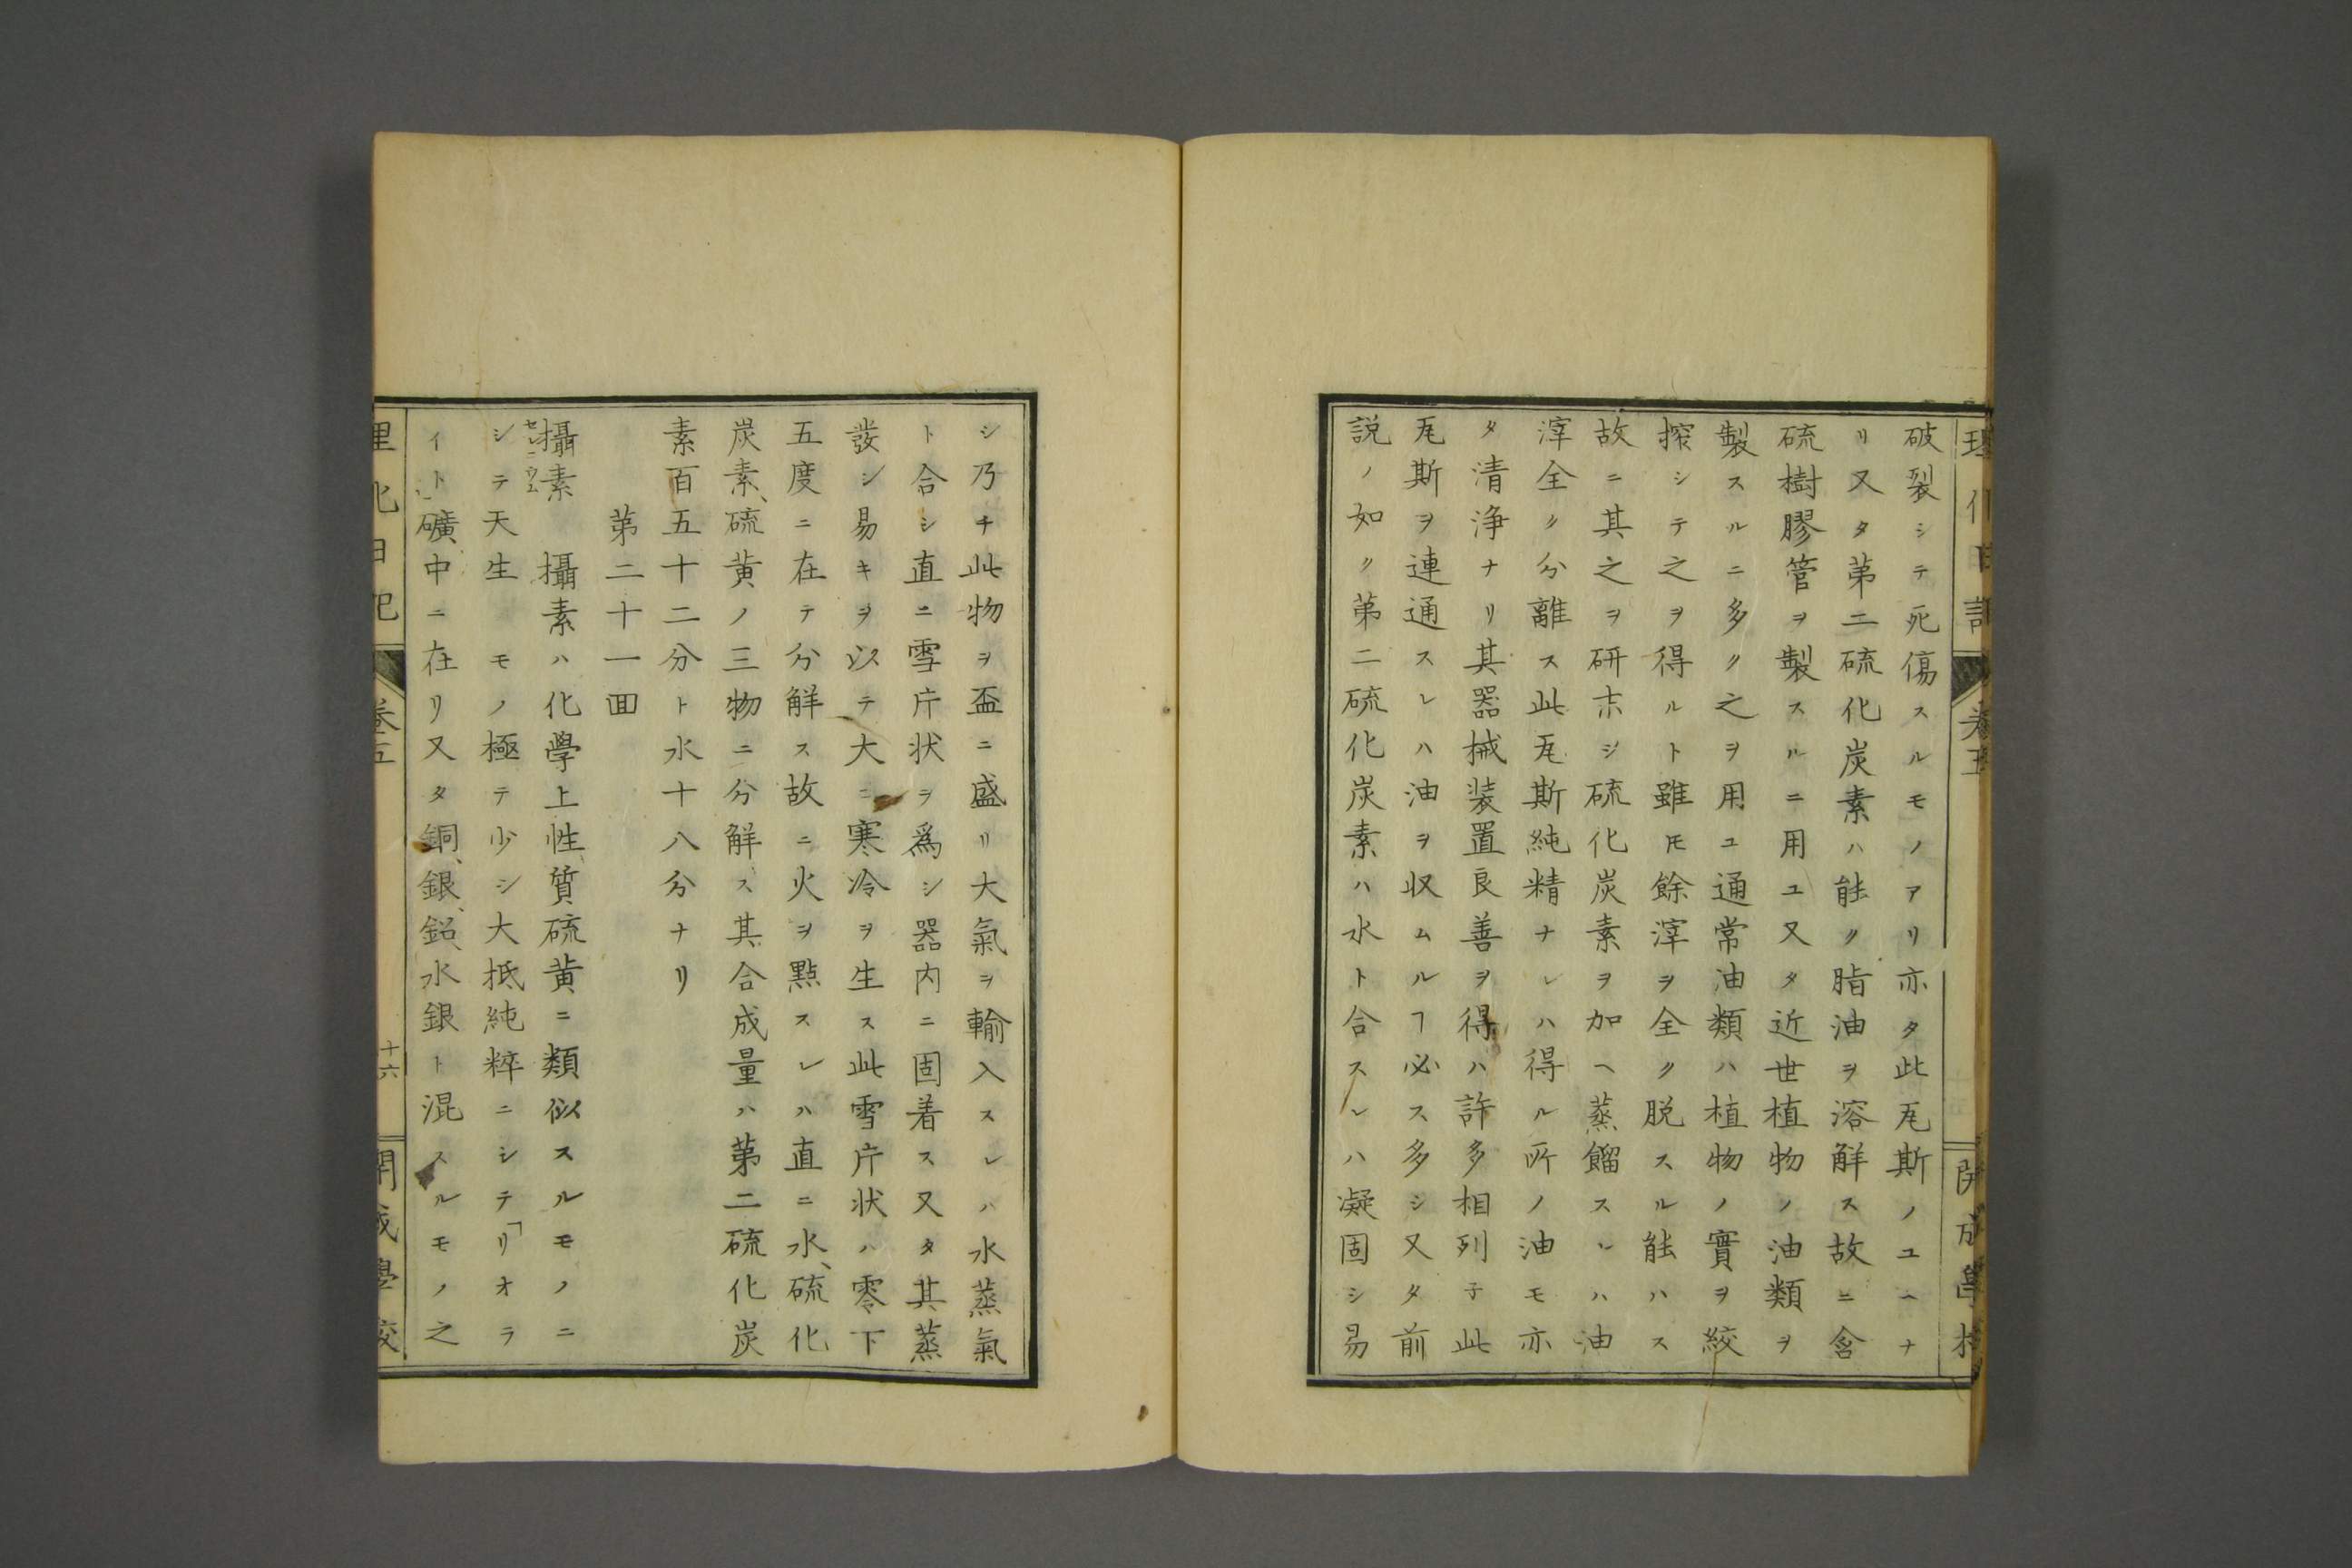 理化日記
卷五
開成學校
破裂シテ死傷スルモノアリ亦タ此瓦斯ノユヘナ
リ又タ第二硫化炭素ハ能ク脂油ヲ溶解ス故ニ含
硫樹膠管ヲ製スルニ用ユ又タ近世植物ノ油類ヲ
製スルニ多ク之ヲ用ユ通常油類ハ植物ノ實ヲ絞
搾シテ之ヲ得ルト雖モ餘滓ヲ全ク脱スル能ハス
故ニ其之ヲ研末シ硫化炭素ヲ加ヘ蒸餾スレハ油
滓全ク分離ス此瓦斯純精ナレハ得ル所ノ油モ亦
タ清浄ナリ其器械装置良善ヲ得ハ許多相列子此
瓦斯ヲ連通スレハ油ヲ収ムルヿ必ス多シ又タ前
説ノ如ク第二硫化炭素ハ水ト合スレハ凝固シ易
シ乃チ此物ヲ盃ニ盛リ大氣ヲ輸入スレハ水蒸氣
ト合シ直ニ雪片状ヲ爲シ器内ニ固着ス又タ其蒸
發シ易キヲ以テ大ニ寒冷ヲ生ス此雪片状ハ零下
五度ニ在テ分解ス故ニ火ヲ點スレハ直ニ水、硫化
炭素、硫黄ノ三物ニ分解ス其合成量ハ第二硫化炭
素百五十二分ト水十八分ナリ
第二十一面
攝素 攝素ハ化學上性質硫黄ニ類似スルモノニ
セレニウム
シテ天生モノ極テ少シ大抵純粹ニシテ「リオラ
イト」礦中ニ在リ又タ銅、銀、鉛、水銀ト混スルモノ之
理化日記
卷五
十六
開成學校